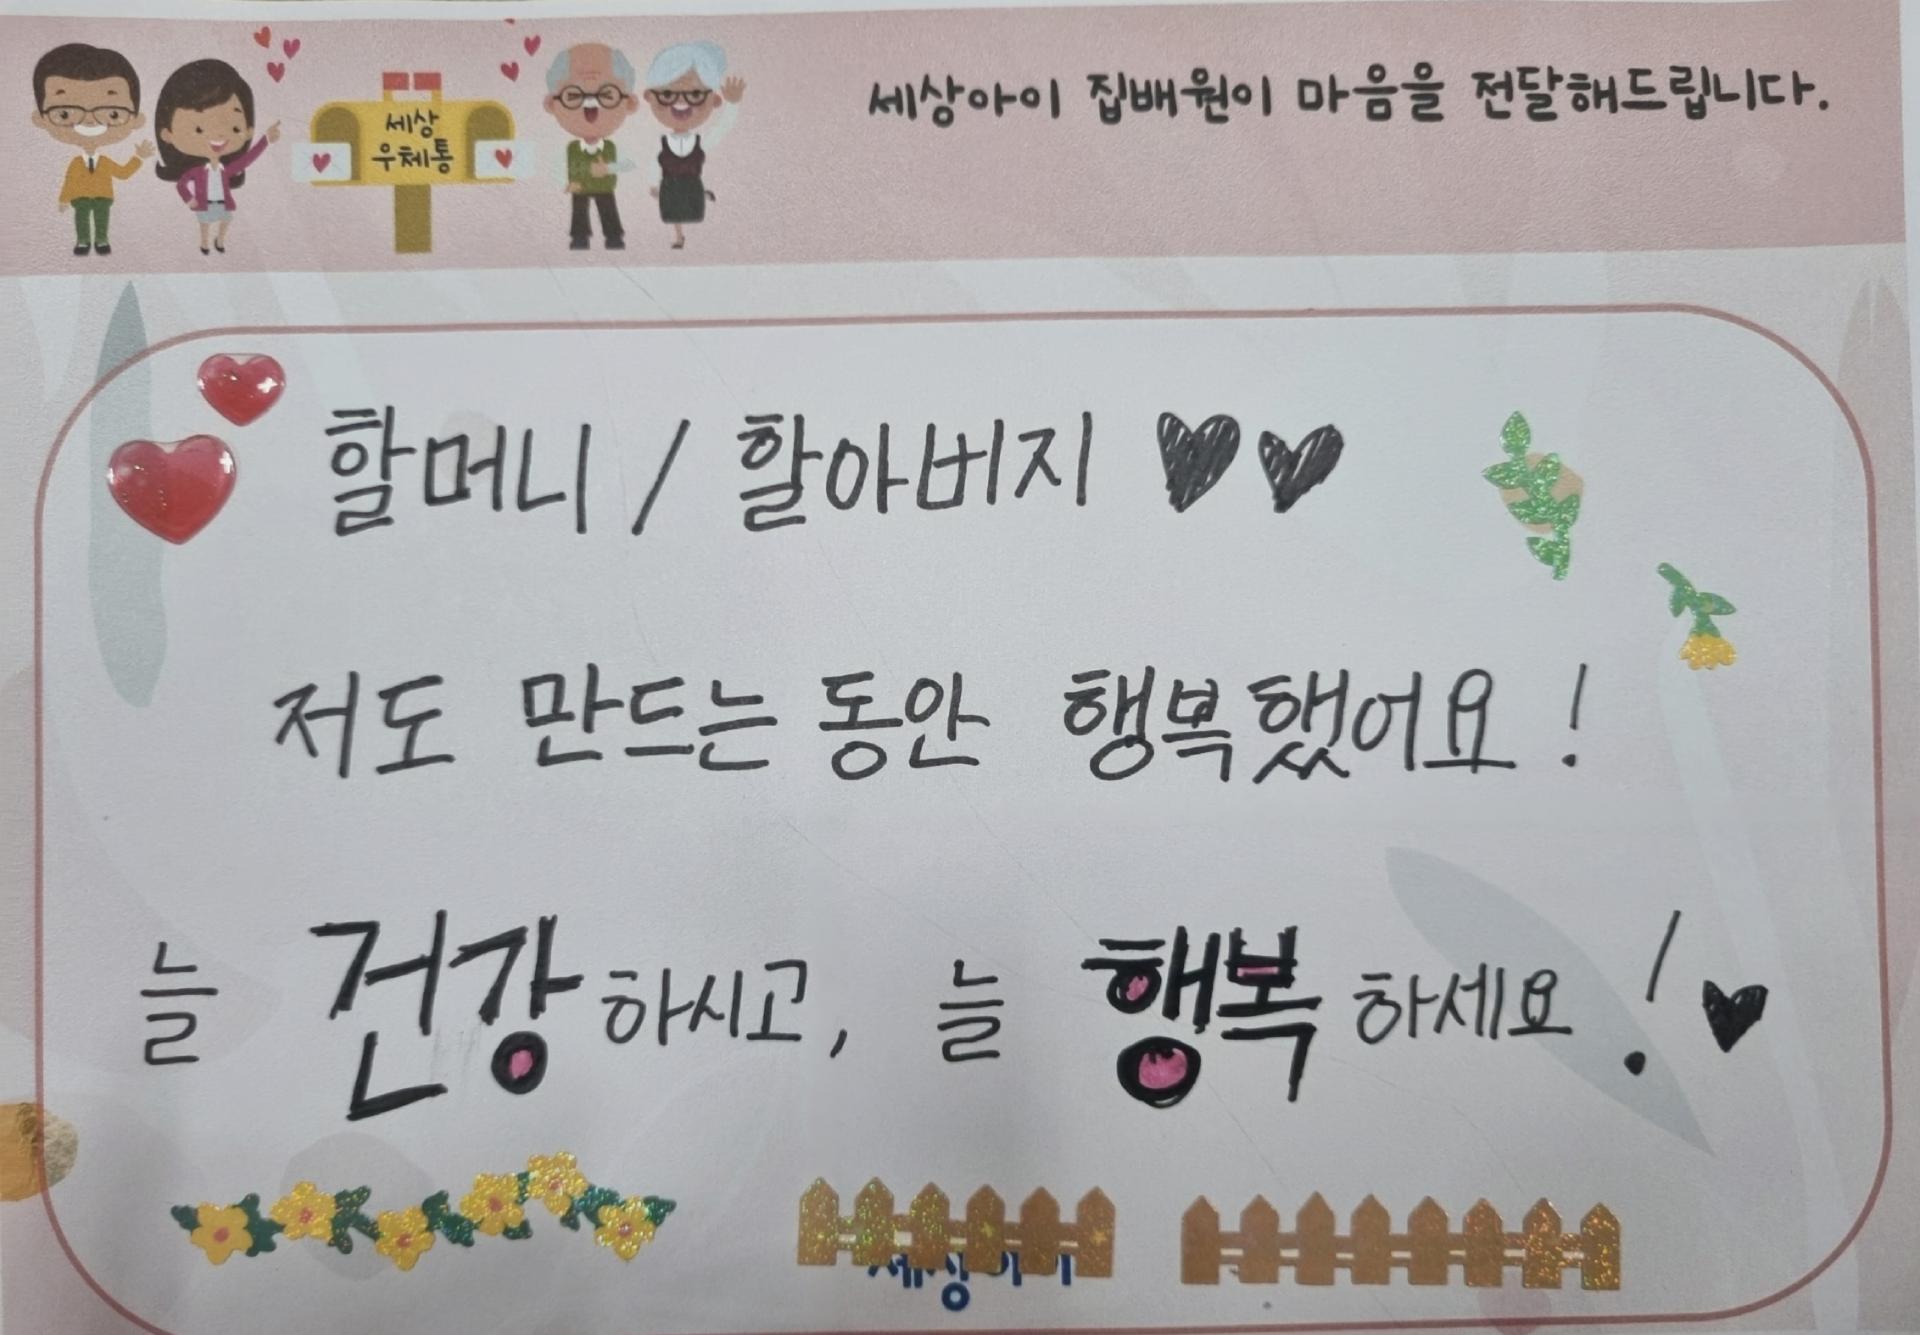 세상아이 집배원이 마음을 전달해드립니다.
세상
우체통
할머니 / 할아버지 ♥♥
저도 만드는 동안 행복했어요!
늘 건강하시고, 늘 행복하세요! ♥
세상아이